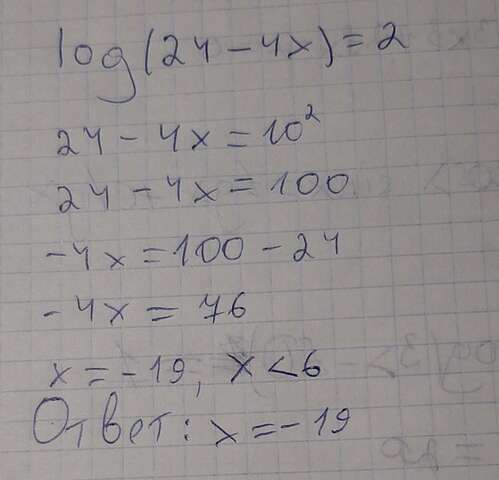 log(24-4x)=2
24-4x=10²
24-4x=100
-4x=100-24
-4x=76
x=-19, x<6
Ответ: x=-19